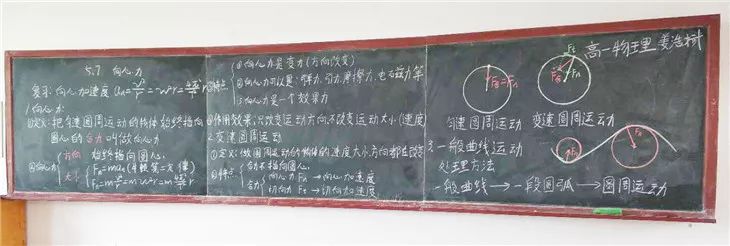 5.7 向心力
复习:向心加速度 aₙ=v²/r=ω²r=4π²/T² r
1向心力:
①定义:把匀速圆周运动的物体始终指向
圆心的合力叫做向心力
②向心力
方向 始终指向圆心
大小 Fₙ=maₙ(牛顿第二定律)
Fₙ=mv²/r=mω²r=m4π²/T² r
③特点
①向心力是变力(方向改变)
②向心力可以是:弹力、引力、摩擦力、也有磁力等
③向心力是一个效果力
④作用效果:只改变运动方向不改变运动大小(速度)
2.变速圆周运动
①定义:做圆周运动的物体的速度大小,方向都在改变
②特点
合力不指向圆心
合力
向心力 Fₙ→向心加速度
切向力 Fₜ→切向加速度
高一物理 姜浩斌
F合=Fₙ
Fₜ
F合
Fₙ
匀速圆周运动 变速圆周运动
3.一般曲线运动
处理方法
一般曲线→一段圆弧→圆周运动